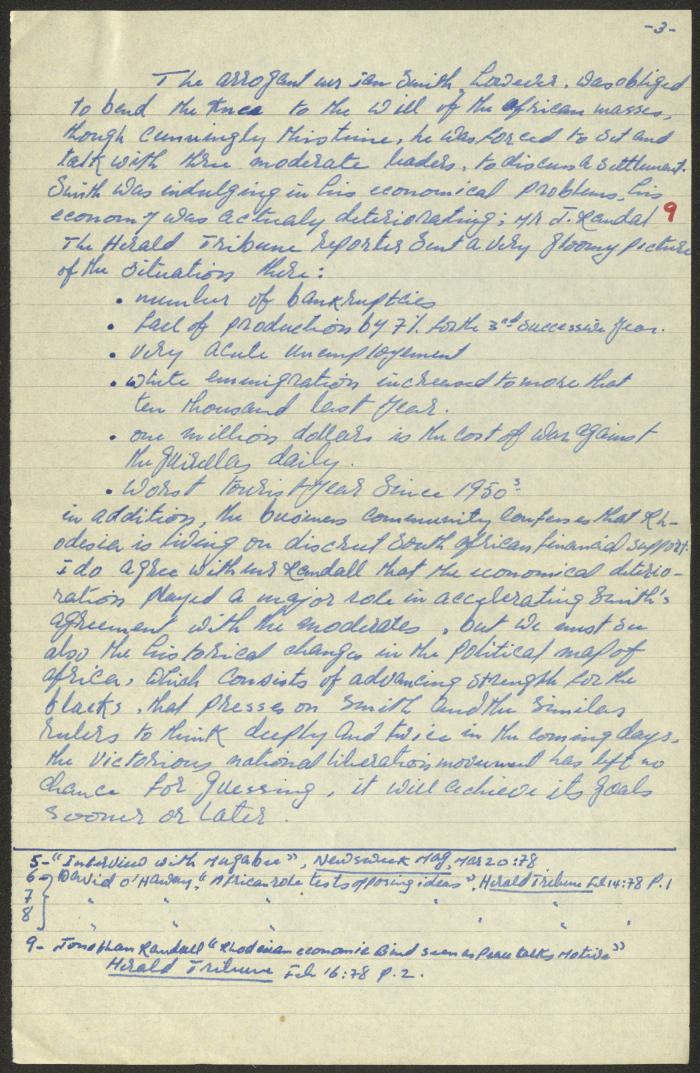 -3-
The arrogant mr ian Smith, however, was obliged
to bend the knee to the will of the african masses,
though cunningly this time, he was forced to sit and
talk with three moderate leaders, to discuss a settlement.
Smith was indulging in his economical problems, his
economy was actualy deteriorating; mr J. Randal 9
The Herald Tribune reporter sent a very gloomy picture
of the situation there:
• number of bankruptcies
• Fall of production by 7% for the 3rd successive year.
• very acute unemployement
• white emmigration increased to more that
ten thousand last year.
• one million dollars is the cost of war against
the guirellas daily.
• Worst tourist year since 1950s
in addition, the business community confesses that Rh-
odesia is living on discret South african financial support.
I do agree with mr Randall that the economical deterio-
ration played a major role in accelerating Smith's
agreement with the moderates, but we must see
also the historical changes in the political map of
africa, which consists of advancing strength for the
blacks, that presses on Smith and the similar
rulers to think deeply and twice in the coming days,
the victorious national liberation movement has left no
chance for guessing, it will achieve its goals
sooner or later.
5- "Interview with Mugabee", Newsweek Mag, Mar 20:78
6- David O'Haway, "African role tests opposing ideas", Herald Tribune Feb 14:78 P.1
7 " " " " " " "
8
9- Jonathan Randall "Rhodesian economic Bind seen as Peace talks Motive"
Herald Tribune Feb 16:78 P.2.